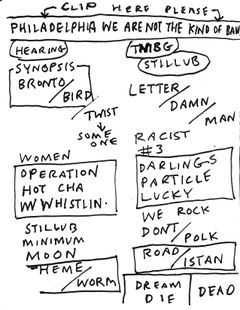 CLIP HERE PLEASE
PHILADELPHIA WE ARE NOT THE KIND OF BAN
HEARING
SYNOPSIS
BRONTO/
BIRD
TWIST
SOME
ONE
WOMEN
OPERATION
HOT CHA
W WHISTLIN.
STILLUB
MINIMUM
MOON
HEME/
WORM
TMBG
STILLUB
LETTER/
DAMN/
MAN
RACIST
#3
DARLINGS
PARTICLE
LUCKY
WE ROCK
DONT/
POLK
ROAD/
ISTAN
DREAM
DIE
DEAD